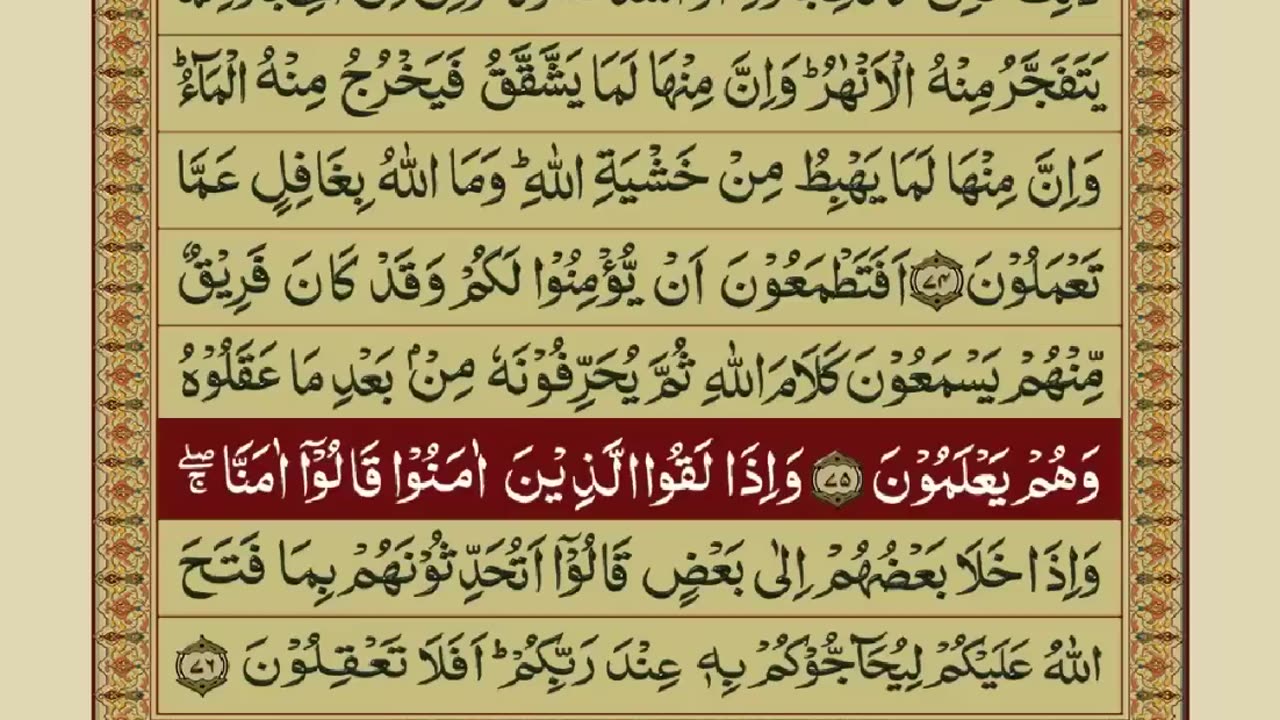 يَتَفَجَّرُ مِنْهُ الْاَنْهٰرُ ؕ وَاِنَّ مِنْهَا لَمَا يَشَّقَّقُ فَيَخْرُجُ مِنْهُ الْمَآءُ ؕ
وَاِنَّ مِنْهَا لَمَا يَهْبِطُ مِنْ خَشْيَةِ اللّٰهِ ؕ وَمَا اللّٰهُ بِغَافِلٍ عَمَّا
تَعْمَلُوْنَ ﴿۷۴﴾ اَفَتَطْمَعُوْنَ اَنْ يُّؤْمِنُوْا لَكُمْ وَقَدْ كَانَ فَرِيْقٌ
مِّنْهُمْ يَسْمَعُوْنَ كَلَامَ اللّٰهِ ثُمَّ يُحَرِّفُوْنَهٗ مِنْۢ بَعْدِ مَا عَقَلُوْهُ
وَهُمْ يَعْلَمُوْنَ ﴿۷۵﴾ وَاِذَا لَقُوا الَّذِيْنَ اٰمَنُوْا قَالُوْۤا اٰمَنَّا ۖۚ
وَاِذَا خَلَا بَعْضُهُمْ اِلٰى بَعْضٍ قَالُوْۤا اَتُحَدِّثُوْنَهُمْ بِمَا فَتَحَ
اللّٰهُ عَلَيْكُمْ لِيُحَآجُّوْكُمْ بِهٖ عِنْدَ رَبِّكُمْ ؕ اَفَلَا تَعْقِلُوْنَ ﴿۷۶﴾